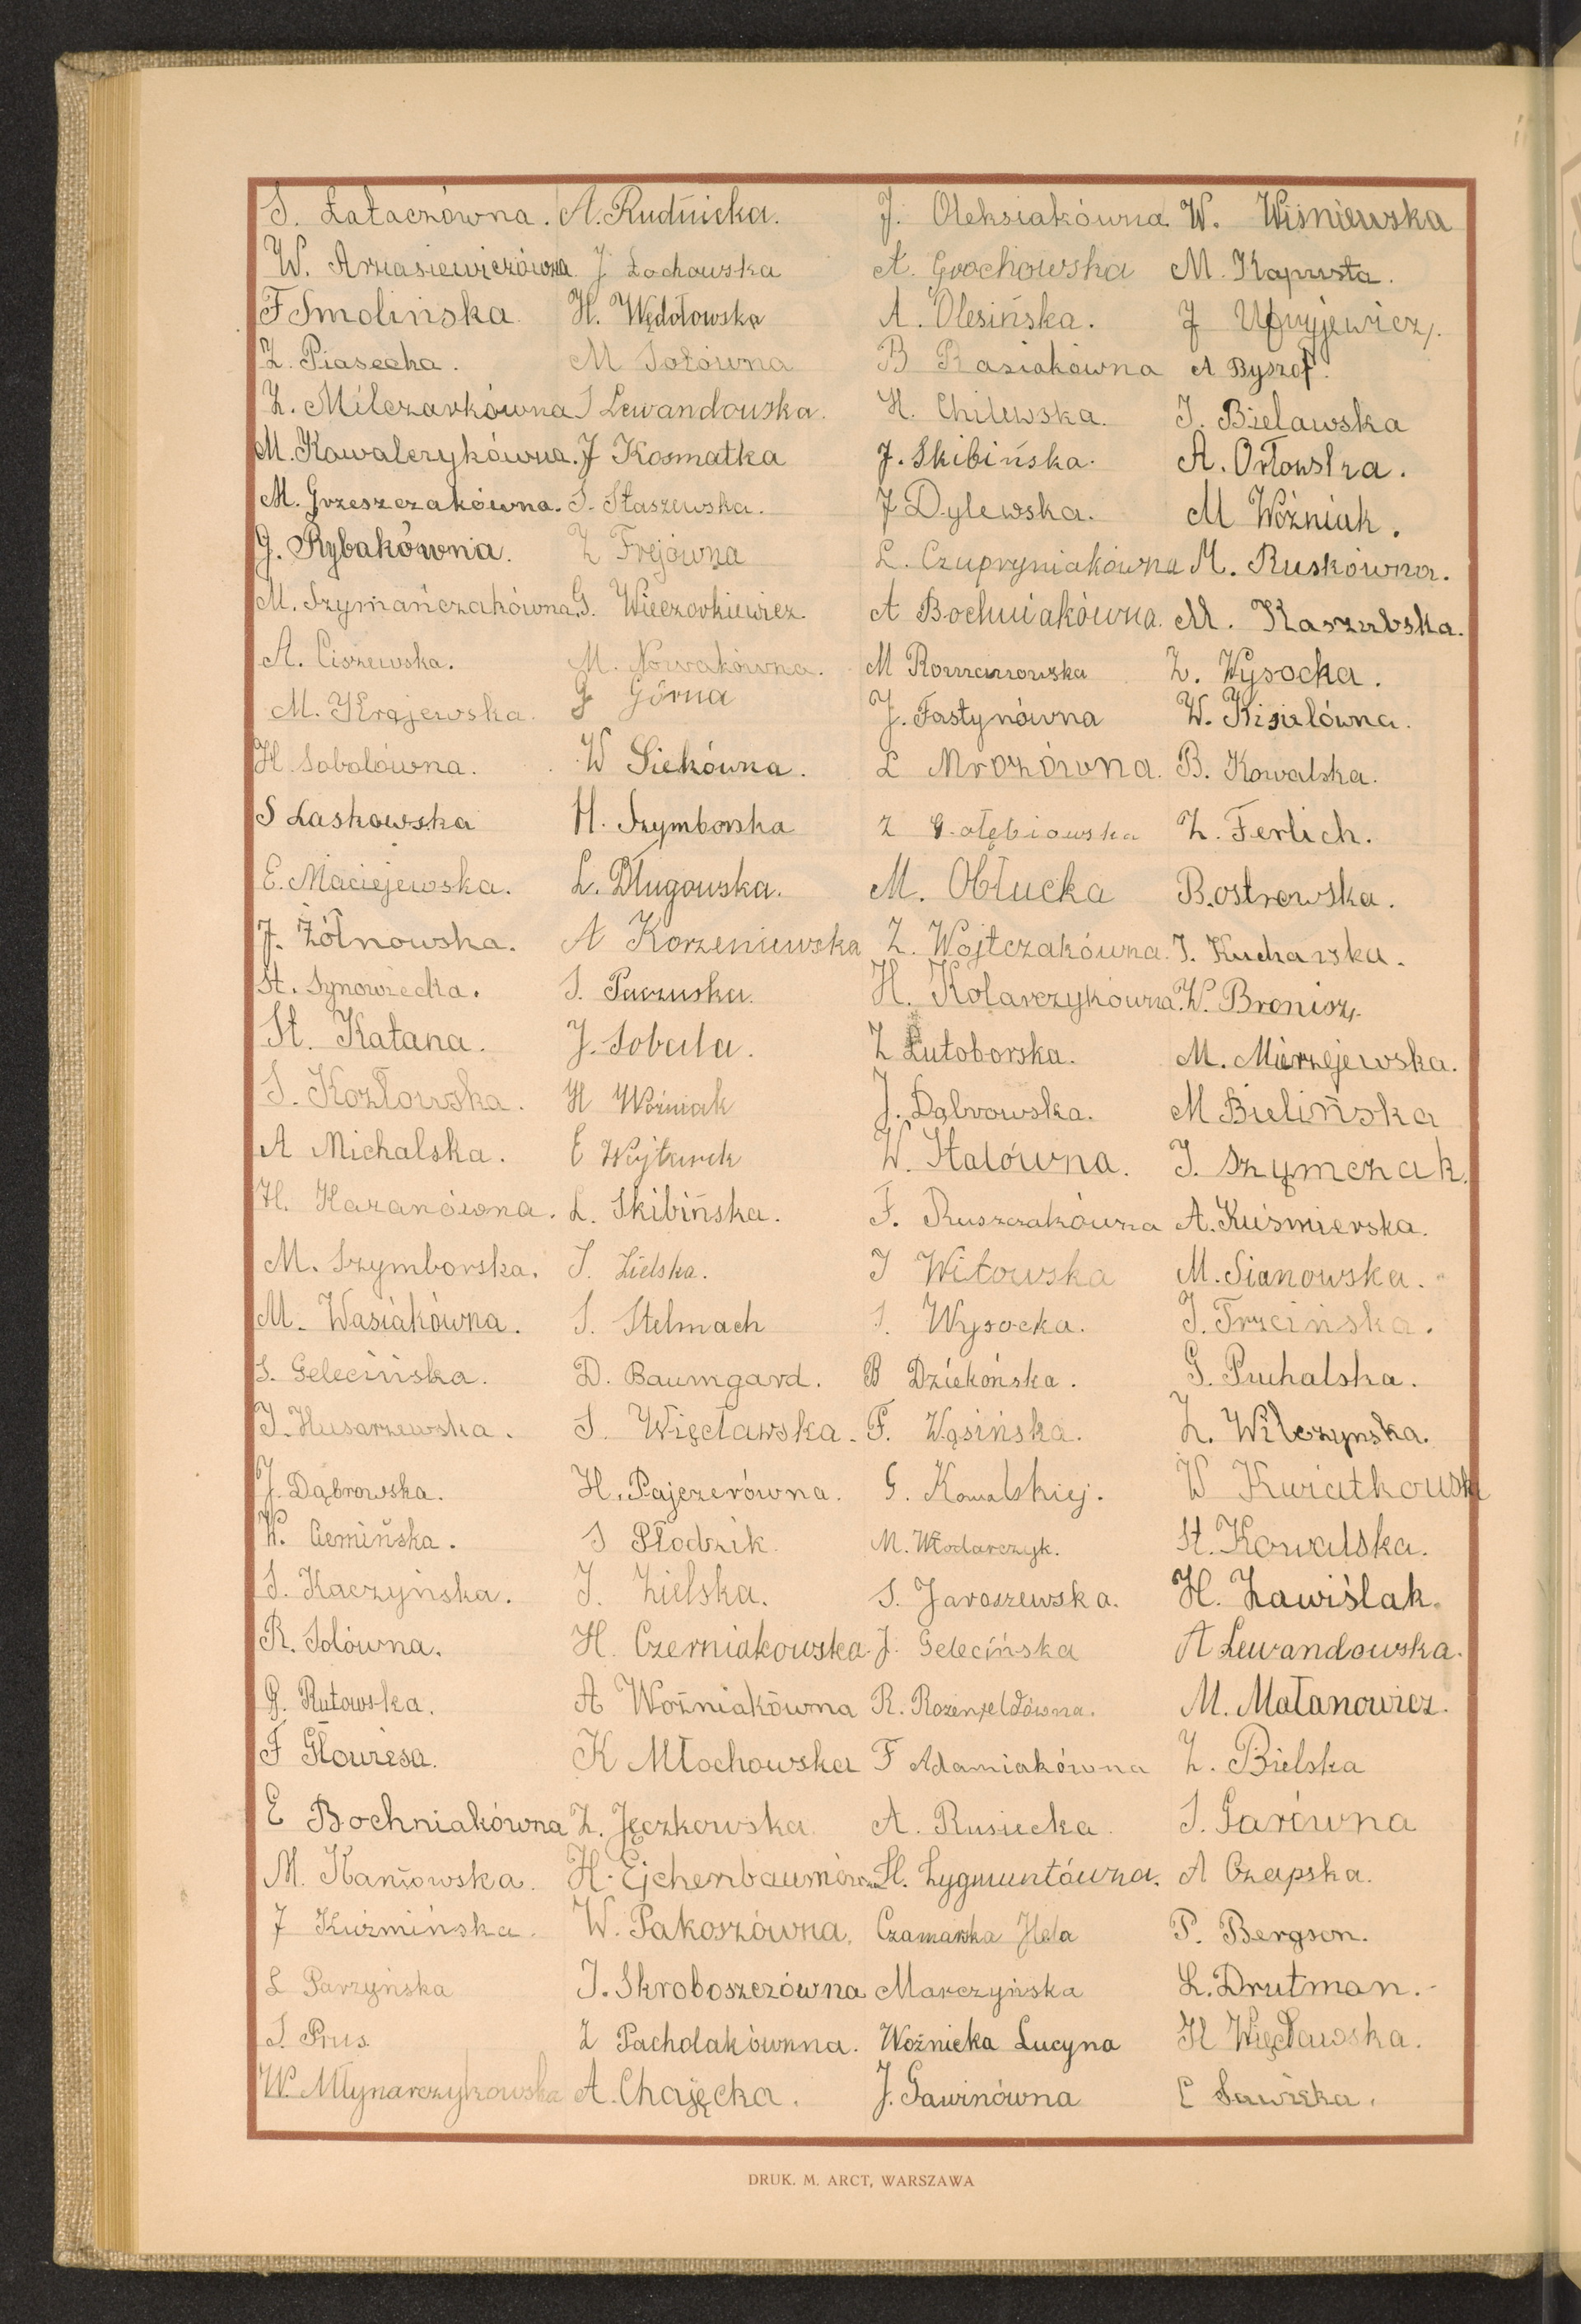 S. Łataczówna. A. Rudnicka. J. Oleksiakówna W. Wiśniewska
W. Arasiewiczówna J Żochowska A. Grochowska M. Kapusta.
F Smolinska H. Wędołowska A. Olesińska. J
Z. Piasecka. M Sotówna B Rasiakówna A Byszof.
Z. Milczarkówna S Lewandowska. H. Chilewska. J. Bielawska
M. Kowalczykówna. J Kosmatka J. Skibińska. A. Orłowska.
M. Grzeszczakówna. S. Staszewska. J Dylewska. M Woźniak.
G. Rybakówna. Z Frejówna L. Czupryniakówna M. Ruskówna.
M. Szymańczakówna. G. Wieczorkiewicz. A Bochniakówna. M. Kaszubska.
A. Ciszewska. M. Nowakówna. M Romanowska Z. Wysocka.
M. Krajewska. J Górna J. Fastynówna W. Kisielówna.
H. Sobolówna. W Siekówna. L Mrozówna. B. Kowalska.
S Laskowska H. Szymborska Z Gołębiowska Z. Ferlich.
E. Maciejewska. L. Długowska. M. Obłucka B. ostrowska.
J. Żółnowska. A Korzeniewska Z. Wojtczakówna. J. Kucharska.
St. Synowiecka. S. Paczuska. H. Kolarczykówna. W. Bronisz.
St. Katana. J. Sobala. Z Lutoborska. M. Mierzejewska.
S. Kozłowska. H Woźniak J. Dąbrowska. M Bielińska
A Michalska. E Wojtarek W. Stalówna. J. Szymczak.
H. Kazanówna. L. Skibińska. F. Ruszczakówna A. Kuśmierska.
M. Szymborska. S. Zielska. J Witowska M. Sianowska.
M. Wasiakówna. S. Stelmach S. Wysocka. J. Trzcińska.
S. Gelecińska. D. Baumgard. B Dziekońska. G. Puchalska.
J. Husarzewska. S. Więcławska. F. Wąsińska. Z. Wilczynska.
J. Dąbrowska. H. Pajczerówna. G. Kowalskiej. W Kwiatkowsk
W. Ciemińska. S Płodzik. M. Włodarczyk. St. Kowalska.
S. Kaczyńska. J. Zielska. S. Jaroszewska. H. Zawiślak.
R. Solówna. H. Czerniakowska. J. Gelecińska A Lewandowska.
G. Rutowska. A Woźniakówna R. Rozenfeldówna. M. Małanowicz.
F K Młochowska F Adamiakówna Z. Bielska
E Bochniakówna Z. Jęczkowska A. Rusiecka. S. Garówna
M. Kaniowska. H. Ejchenbaumówna St. Zygmuntówna. A Czapska.
J Kuźmińska. W. Pakoszówna. Czamarska Hela P. Bergson.
L Parzyńska J. Skroboszczówna Marczyńska L. Drutman.
S. Prus. Z Pacholakównna. Woźnicka Lucyna H Więcławska.
W. Młynarczykowska A. Chajęcka. J. Gawinówna E Sawicka.
DRUK. M. ARCT, WARSZAWA